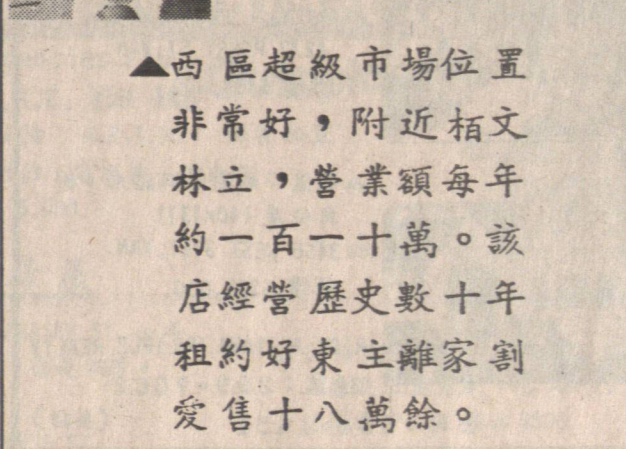 ▲西區超級市場位置
非常好，附近栢文
林立，營業額每年
約一百一十萬。該
店經營歷史數十年
租約好東主離家割
愛售十八萬餘。